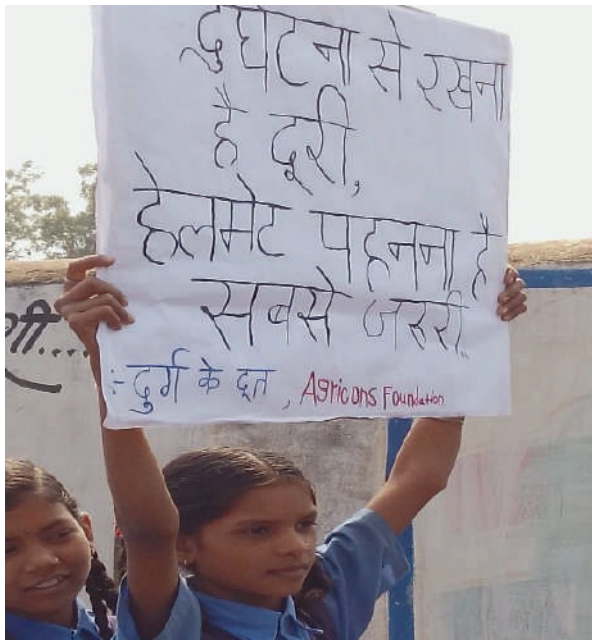 दुघटना से रखना
है दूरी,
हेलमेट पहनना है
सबसे जरुरी..
:- दुर्ग के दूत , Agricons Foundation